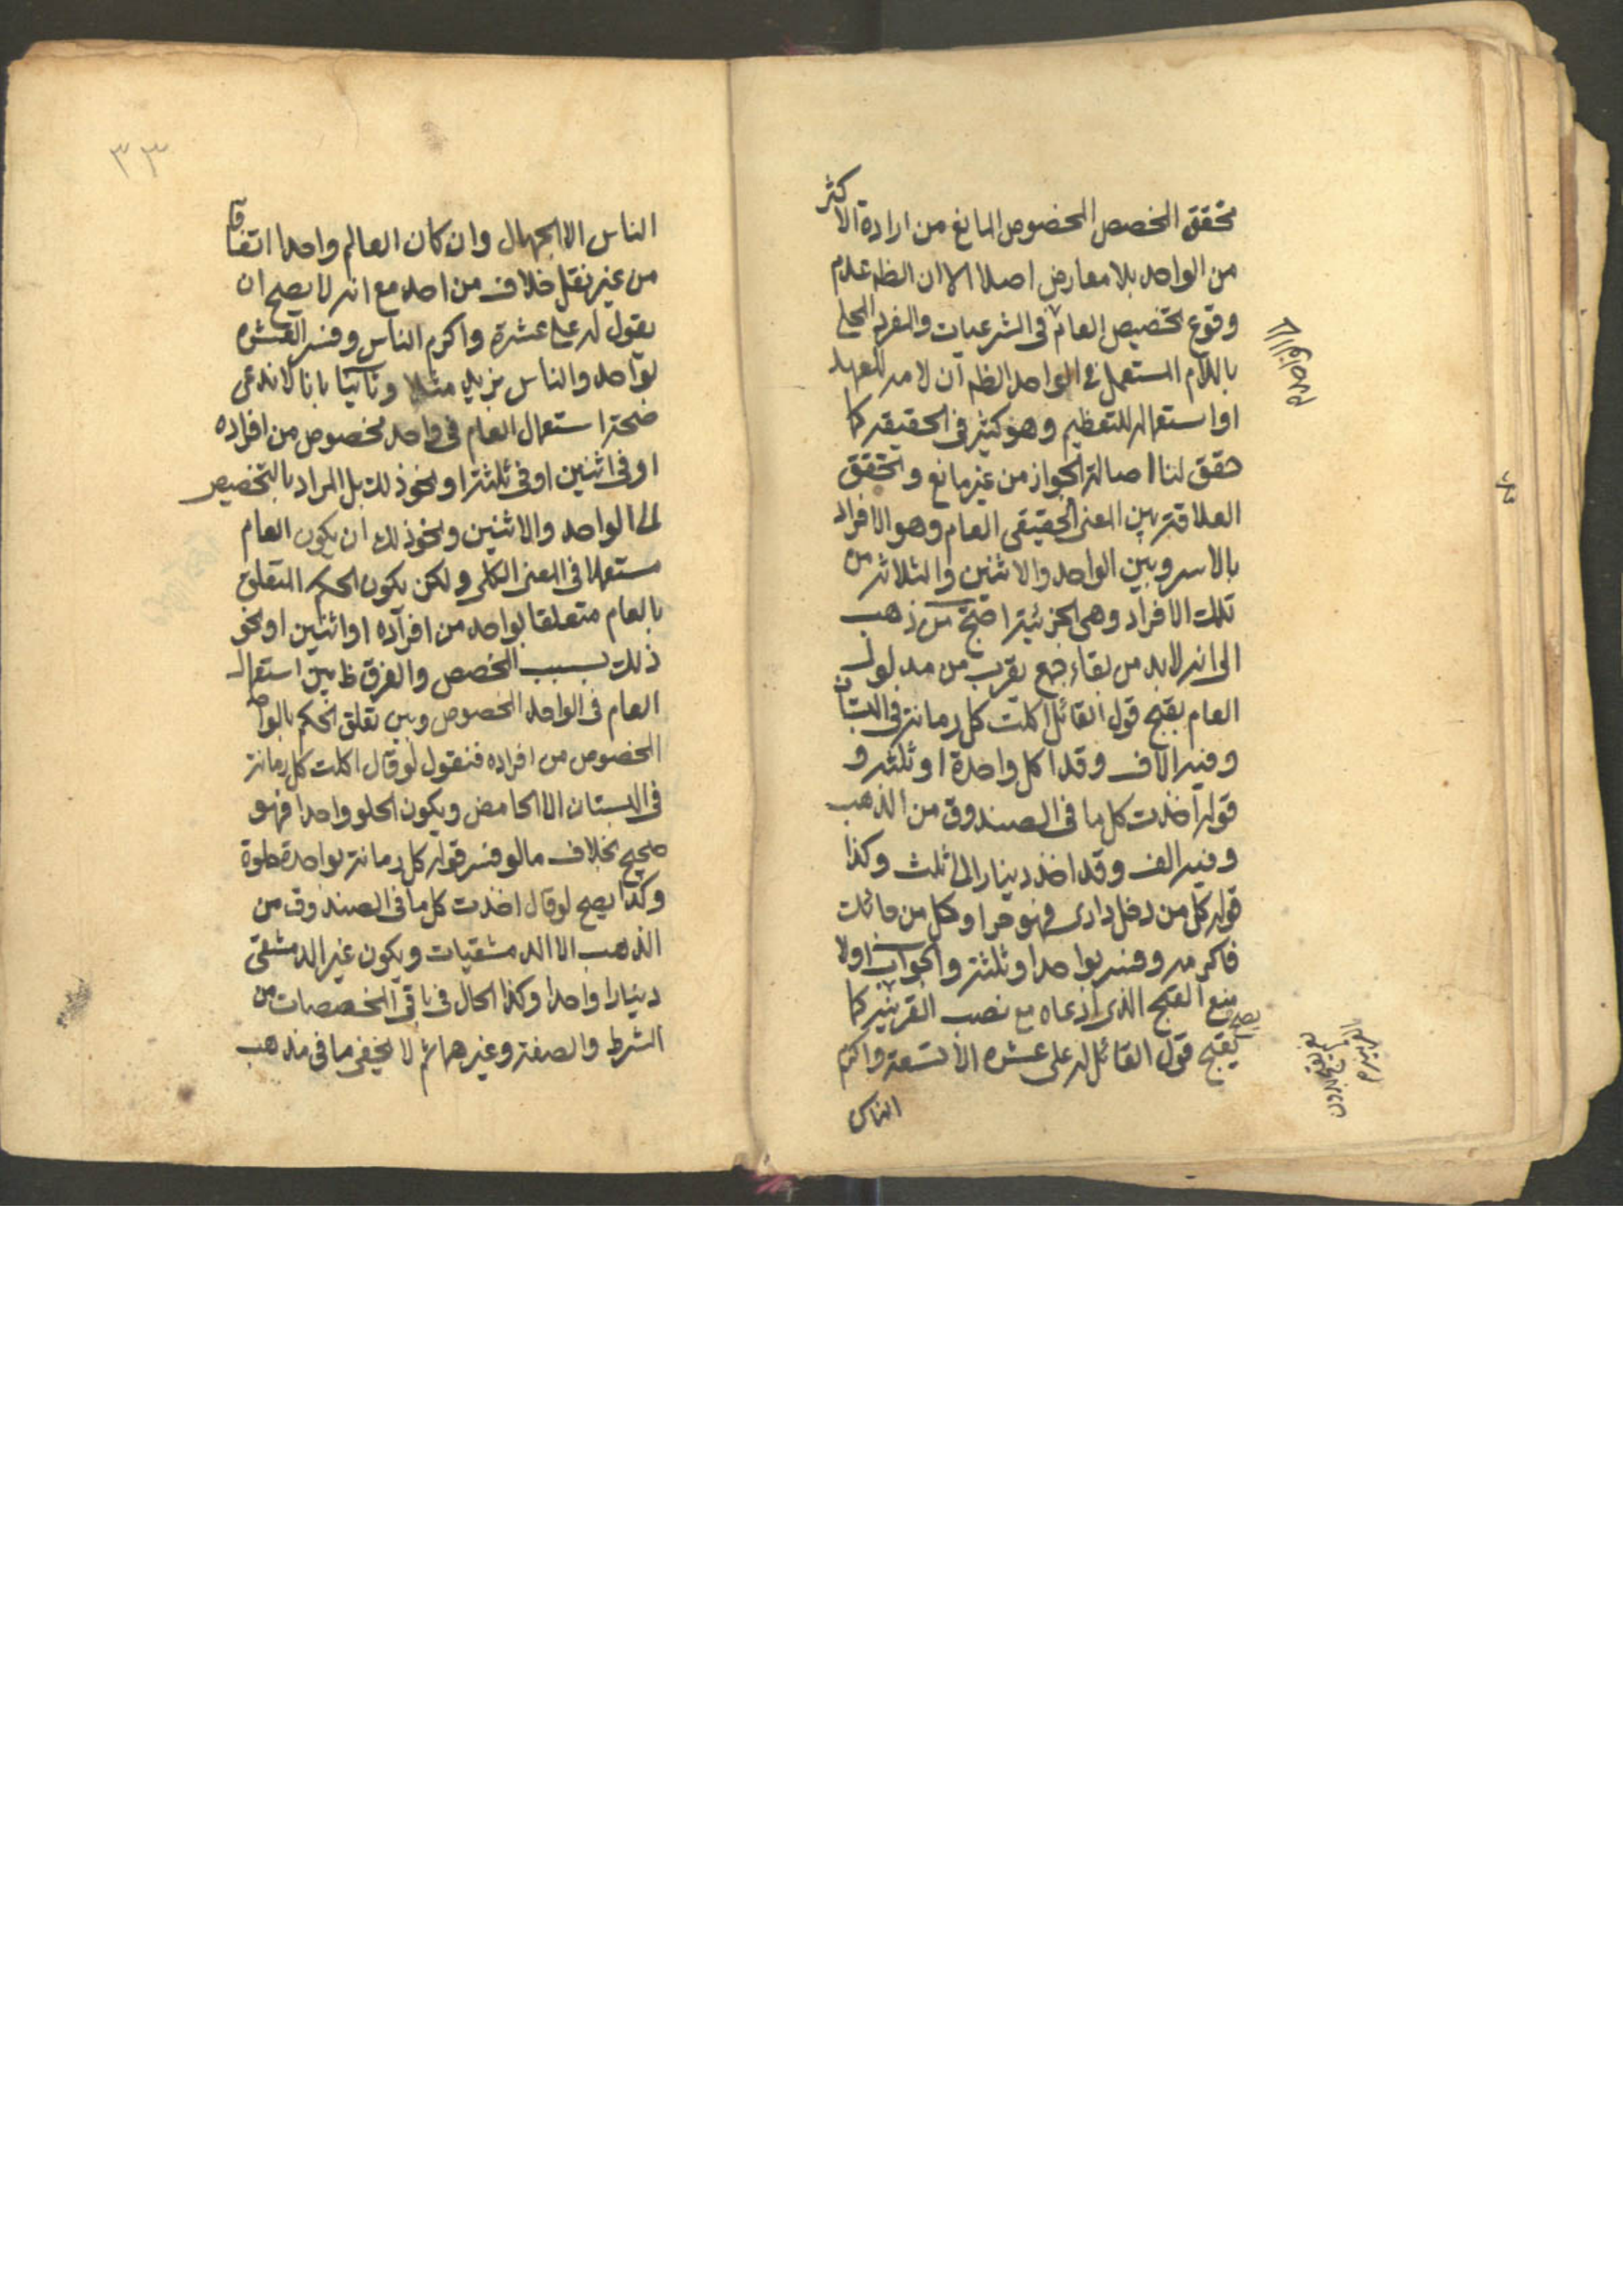 تحقق المخصص المخصوص المانع من ارادة الاكثر
من الواحد بلا معارض اصلا الا ان الظه عدم
وقوع تخصيص العام في الشرعيات والمفرد المحلى
باللام المستعمل في الواحد الظه ان لامه للعهد
او استعماله للتعظيم وهو كثير في الحقيقه كما
حقق لنا اصالة الجواز من غير مانع وتحقق
العلاقة بين المعنى الحقيقى العام وهو الافراد
بالاسر وبين الواحد والاثنين والثلاثه من
تلك الافراد وهي الجزئية احتج من ذهب
الى انه لابد من بقاء جمع يقرب من مدلول
العام بقبح قول القائل اكلت كل رمانة في البستان
وفيه الاف وقد اكل واحدة او ثلثه و
قوله اخذت كل ما في الصندوق من الذهب
وفيه الف وقد اخذ دينارا الى ثلث وكذا
قوله كل من دخل داري فهو حر او كل من جائك
فاكرمه وفسر بواحد او ثلثة والجواب اولا
بمنع القبح الذي ادعاه مع نصب القرينه كما
يقبح قول القائل له على عشره الا تسعة واكرم
الناس
٣٣
الناس الا الجهال وان كان العالم واحدا اتفاقا
من غير نقل خلاف من احد مع انه لا يصح ان
يقول له على عشرة واكرم الناس وفسر العشره
بواحد والناس بزيد مثلا وثانيا بانا لا ندعى
صحة استعمال العام في واحد مخصوص من افراده
او في اثنين او في ثلثة او نحو ذلك بل المراد بالتخصيص
الى الواحد والاثنين ونحو ذلك ان يكون العام
مستعملا في المعنى الكلى ولكن يكون الحكم المتعلق
بالعام متعلقا بواحد من افراده او اثنين او نحو
ذلك بسبب المخصص والفرق ظ بين استعمال
العام في الواحد المخصوص وبين تعلق الحكم بالواحد
المخصوص من افراده فنقول لو قال اكلت كل رمانة
في البستان الا الحامض ويكون الحلو واحدا فهو
صحيح بخلاف ما لو فسر قوله كل رمانة بواحدة حلوة
وكذا يصح لو قال اخذت كل ما في الصندوق من
الذهب الا الدمشقيات ويكون غير الدمشقى
دينارا واحدا وكذا الحال في باقى المخصصات من
الشرط والصفة وغيرهما ثم لا يخفى ما في مذهب